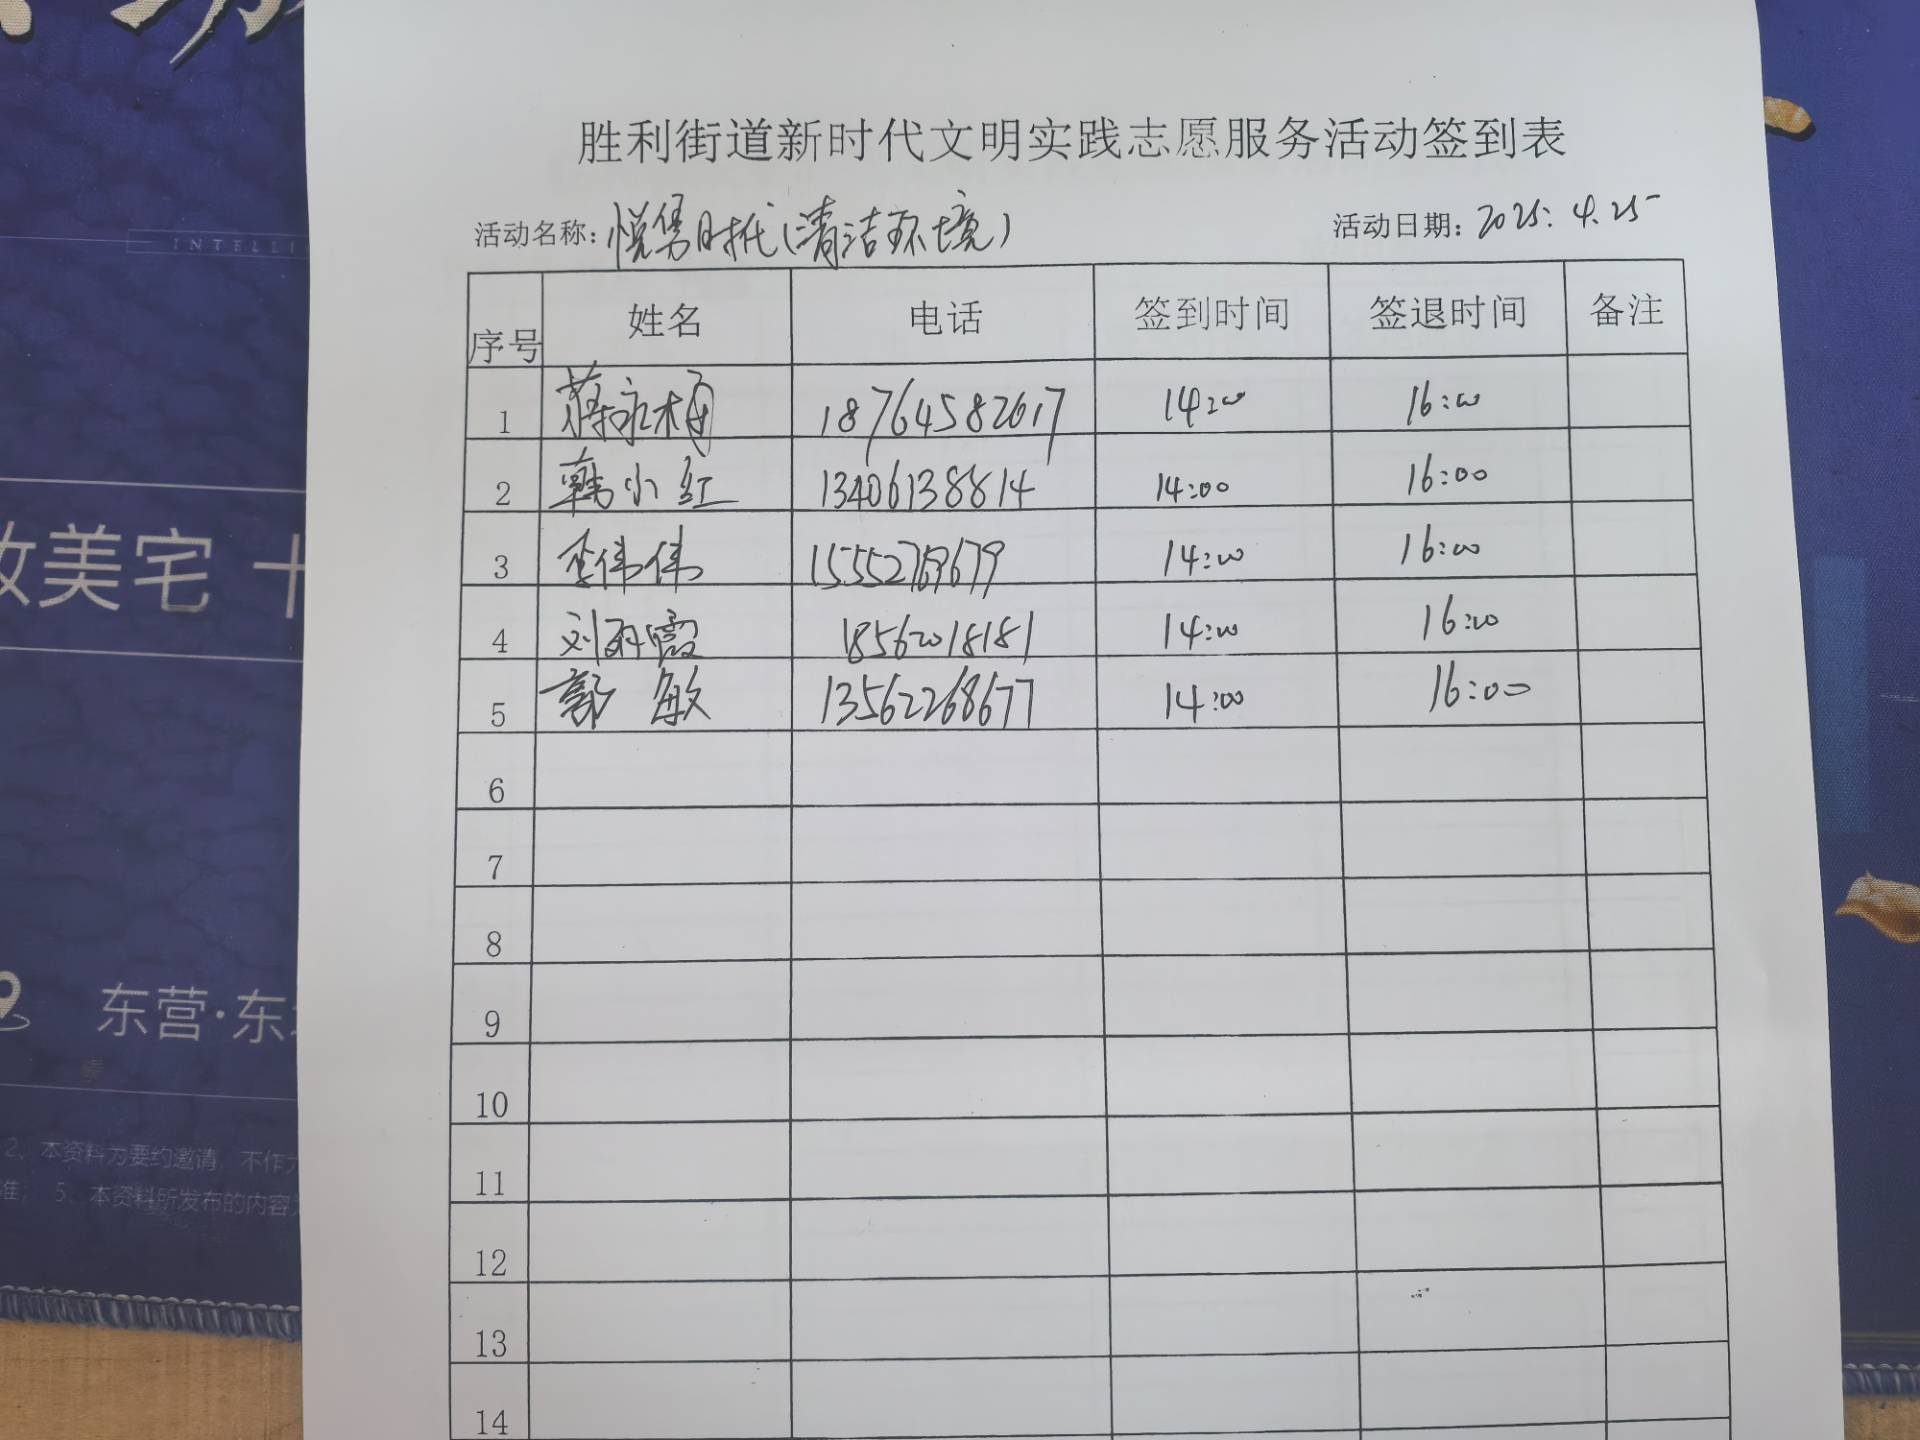 INTELLI
美宅 十
东营·东
2、本资料为要约邀请,不作
准; 5、本资料所发布的内容为
胜利街道新时代文明实践志愿服务活动签到表
活动名称: 悦隽时代(清洁环境) 活动日期: 2025.4.25
序号 姓名 电话 签到时间 签退时间 备注
1 蒋永楠 18764582617 14:00 16:00
2 韩小红 13406138814 14:00 16:00
3 李伟伟 15552769679 14:00 16:00
4 刘丽霞 18562018181 14:00 16:00
5 郭敏 13562268677 14:00 16:00
6
7
8
9
10
11
12
13
14